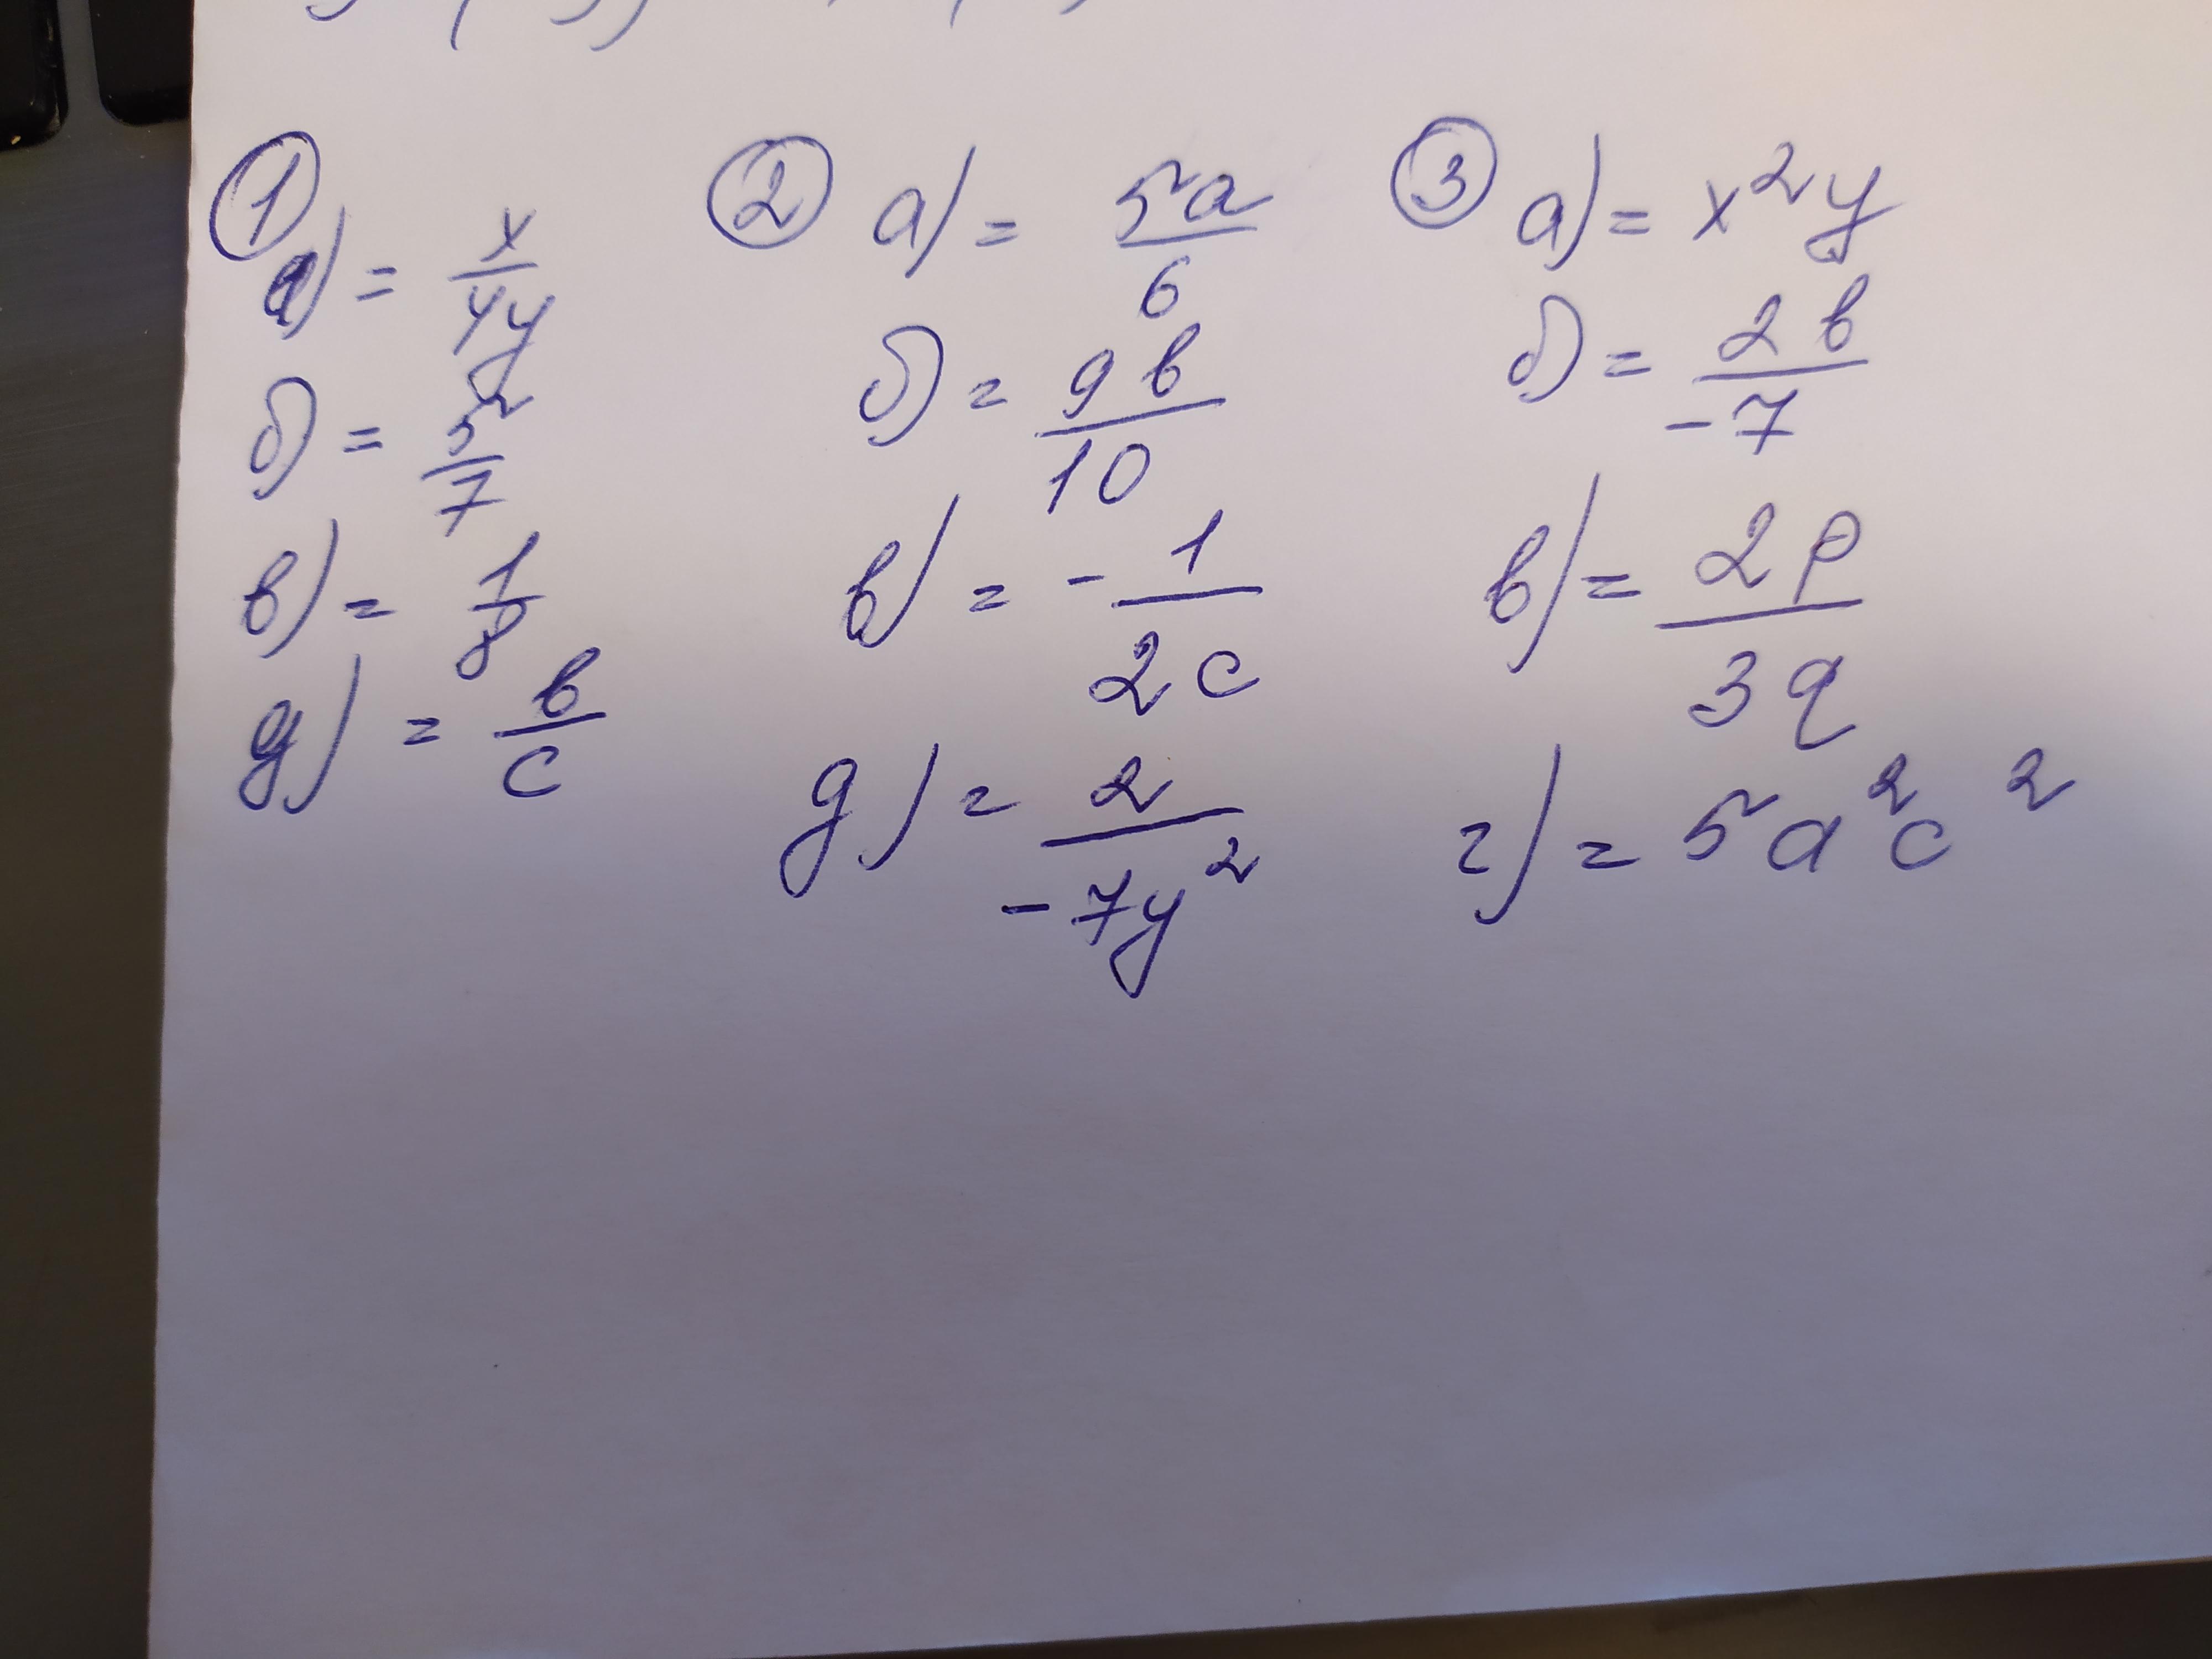 ① а) = x/4y
б) = 5/7
в) = 1/8
g) = b/c
② а) = 5a/6
б) = 9b/10
в) = -1/2c
g) = 2/-7y²
③ а) = x²y
б) = 2b/-7
в) = 2p/3q
г) = 5a²c²